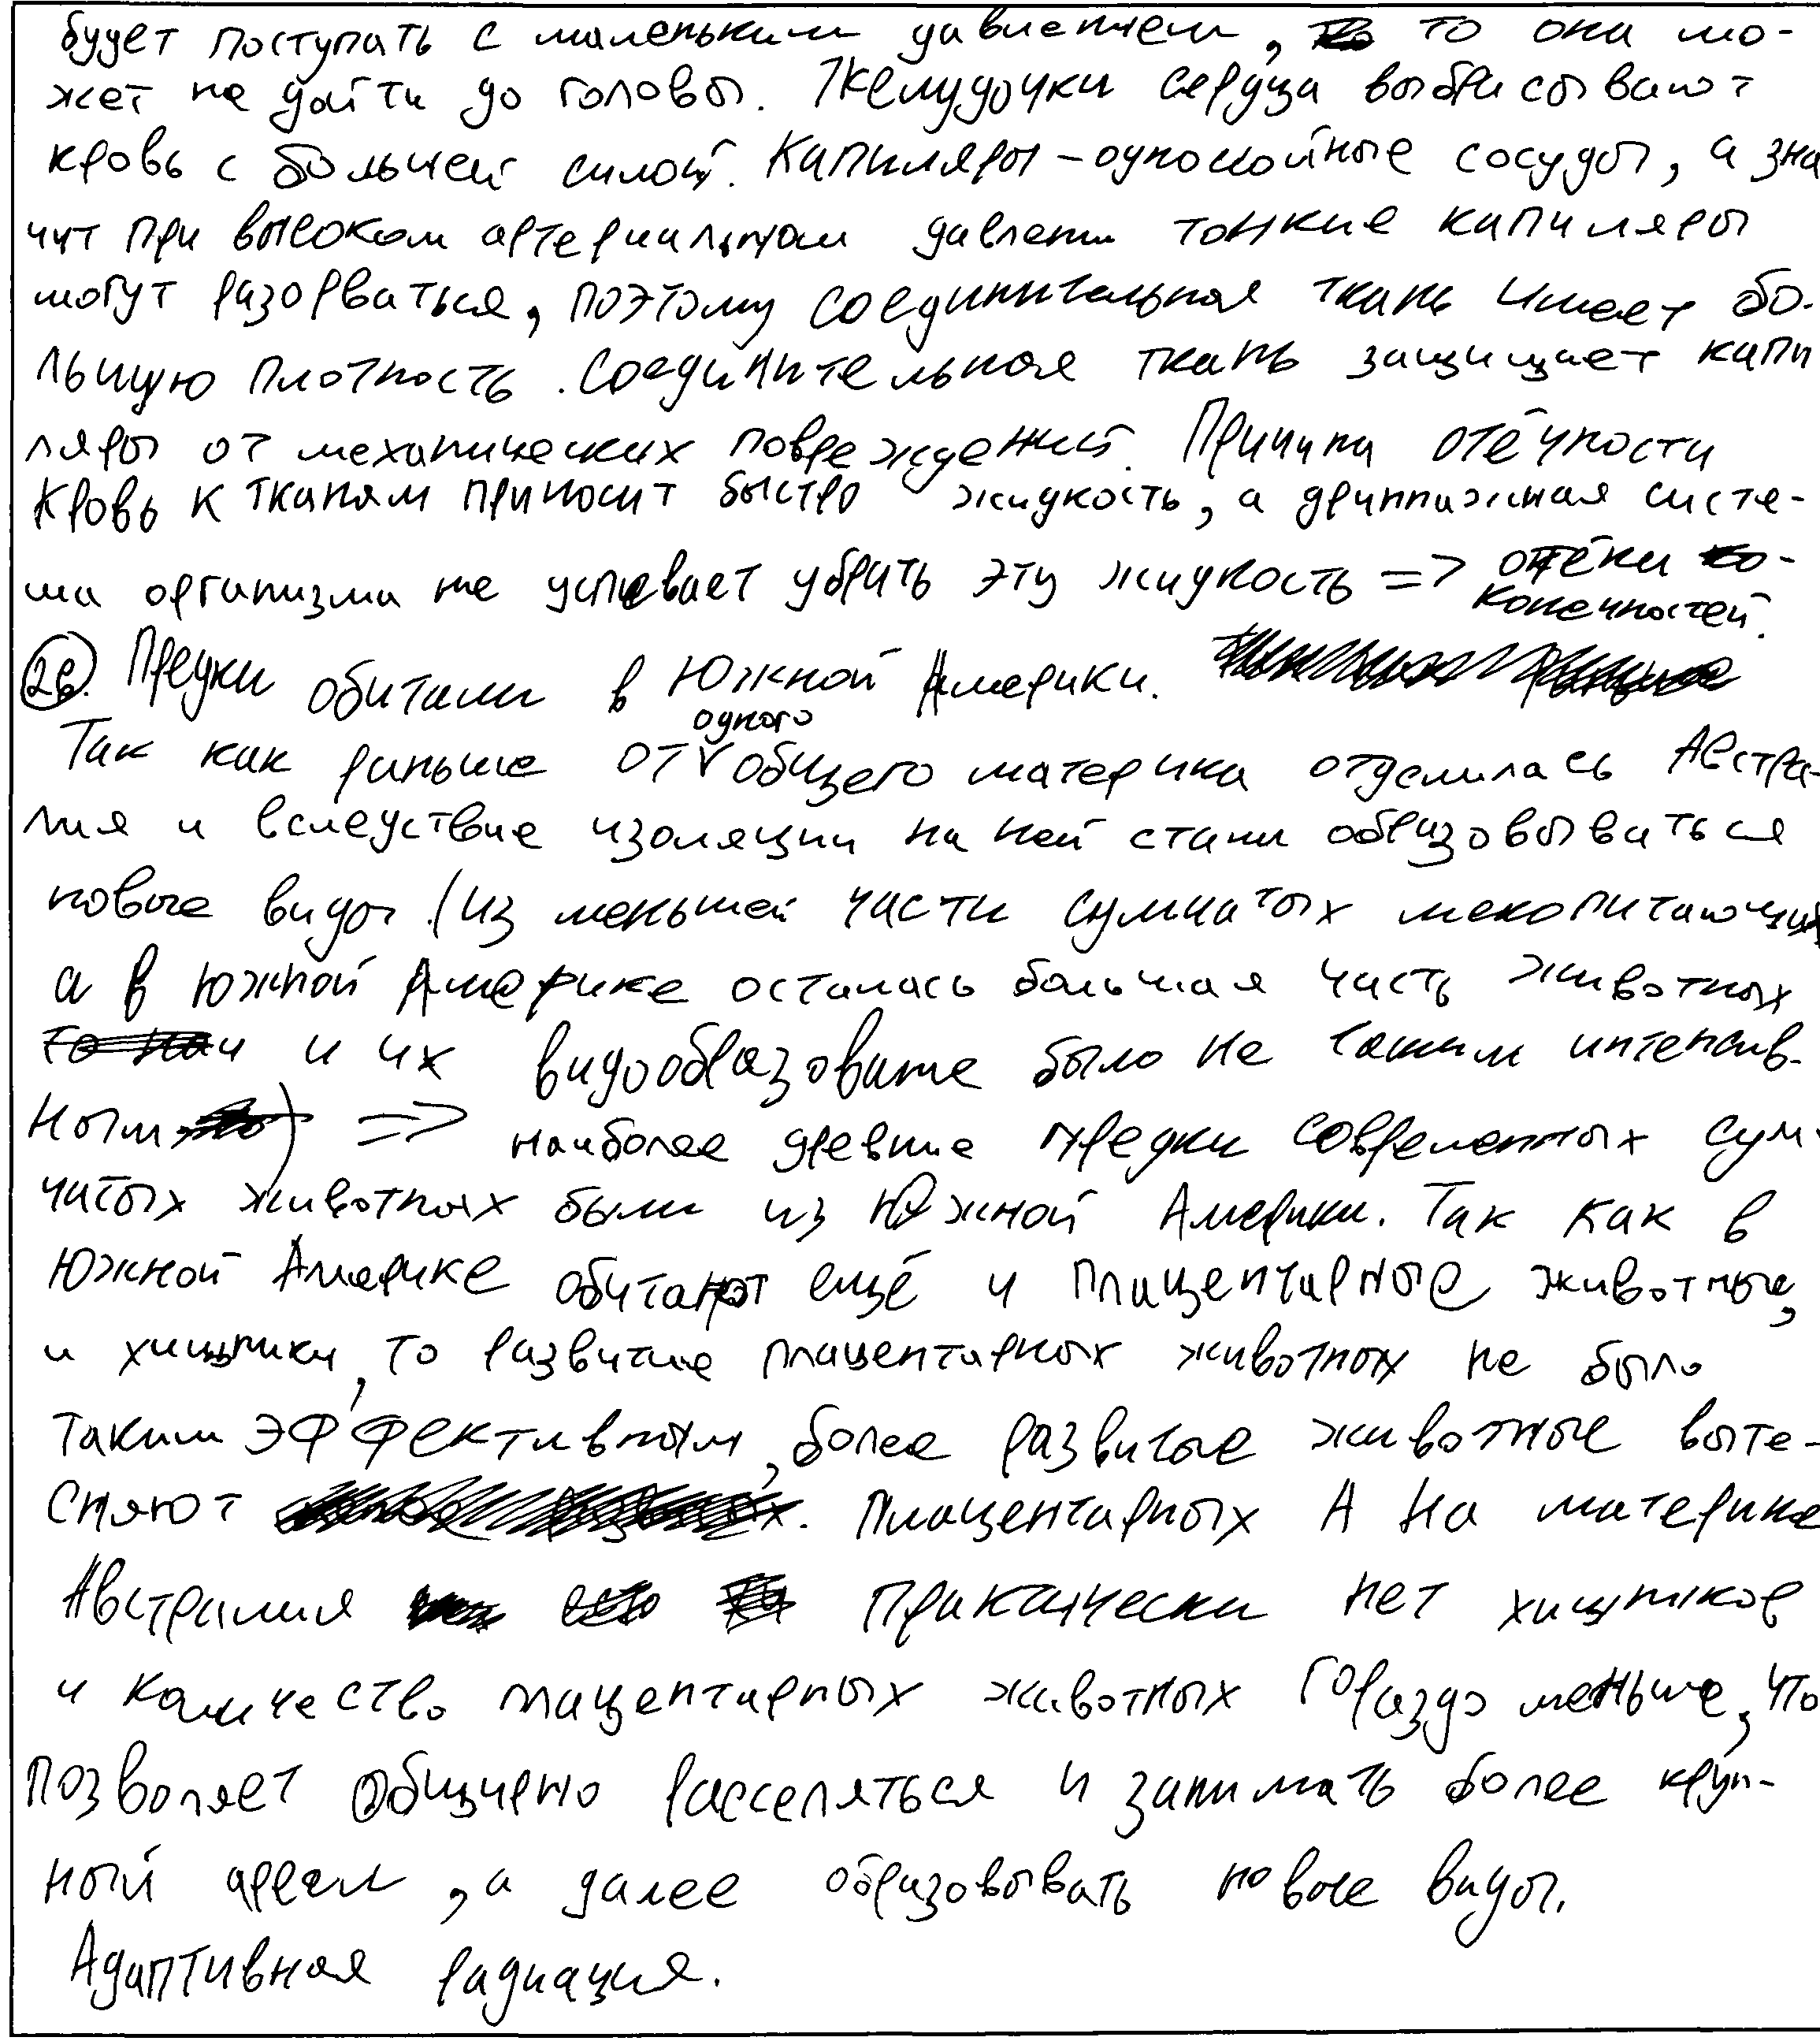 будет поступать с маленьким давлением, то она мо-
жет не дойти до головы. Желудочки сердца выбрасывают
кровь с большей силой. Капиляры – однослойные сосуды, а зна
чит при высоком артериальном давлени тонкие капиляры
могут разорваться, поэтому соединительная ткань имеет бо-
льшую плотность. Соединительная ткань защищает капи
ляры от механических повреждений. Причина отёчности
Кровь к тканям приносит быстро жидкость, а дринпажная систе-
ма организма не успевает убрать эту жидкость => отёки
конечностей.
26. Предки обитали в Южной Америки.
Так как раньше от одного общего материка отделилась Австра-
лия и вследствие изоляции на ней стали образовываться
новые виды. (из меньшей части сумчатых мекопитающих
а в Южной Америке осталась большая часть животных
и их видообразование было не таким интенсив-
ным) => наиболее древние предки современных сум-
чатых животных были из Южной Америки. Так как в
Южной Америке обитают ещё и плацентарные животные,
и хищники, то развитие плацентарных животных не было
таким эффективным, более развитые животные выте-
сняют плацентарных А на материке
Австралия практически нет хищников
и количество плацентарных животных гораздо меньше, что
позволяет обширно расселяться и занимать более круп-
ный ареал, а далее образовывать новые виды.
Адаптивная радиация.